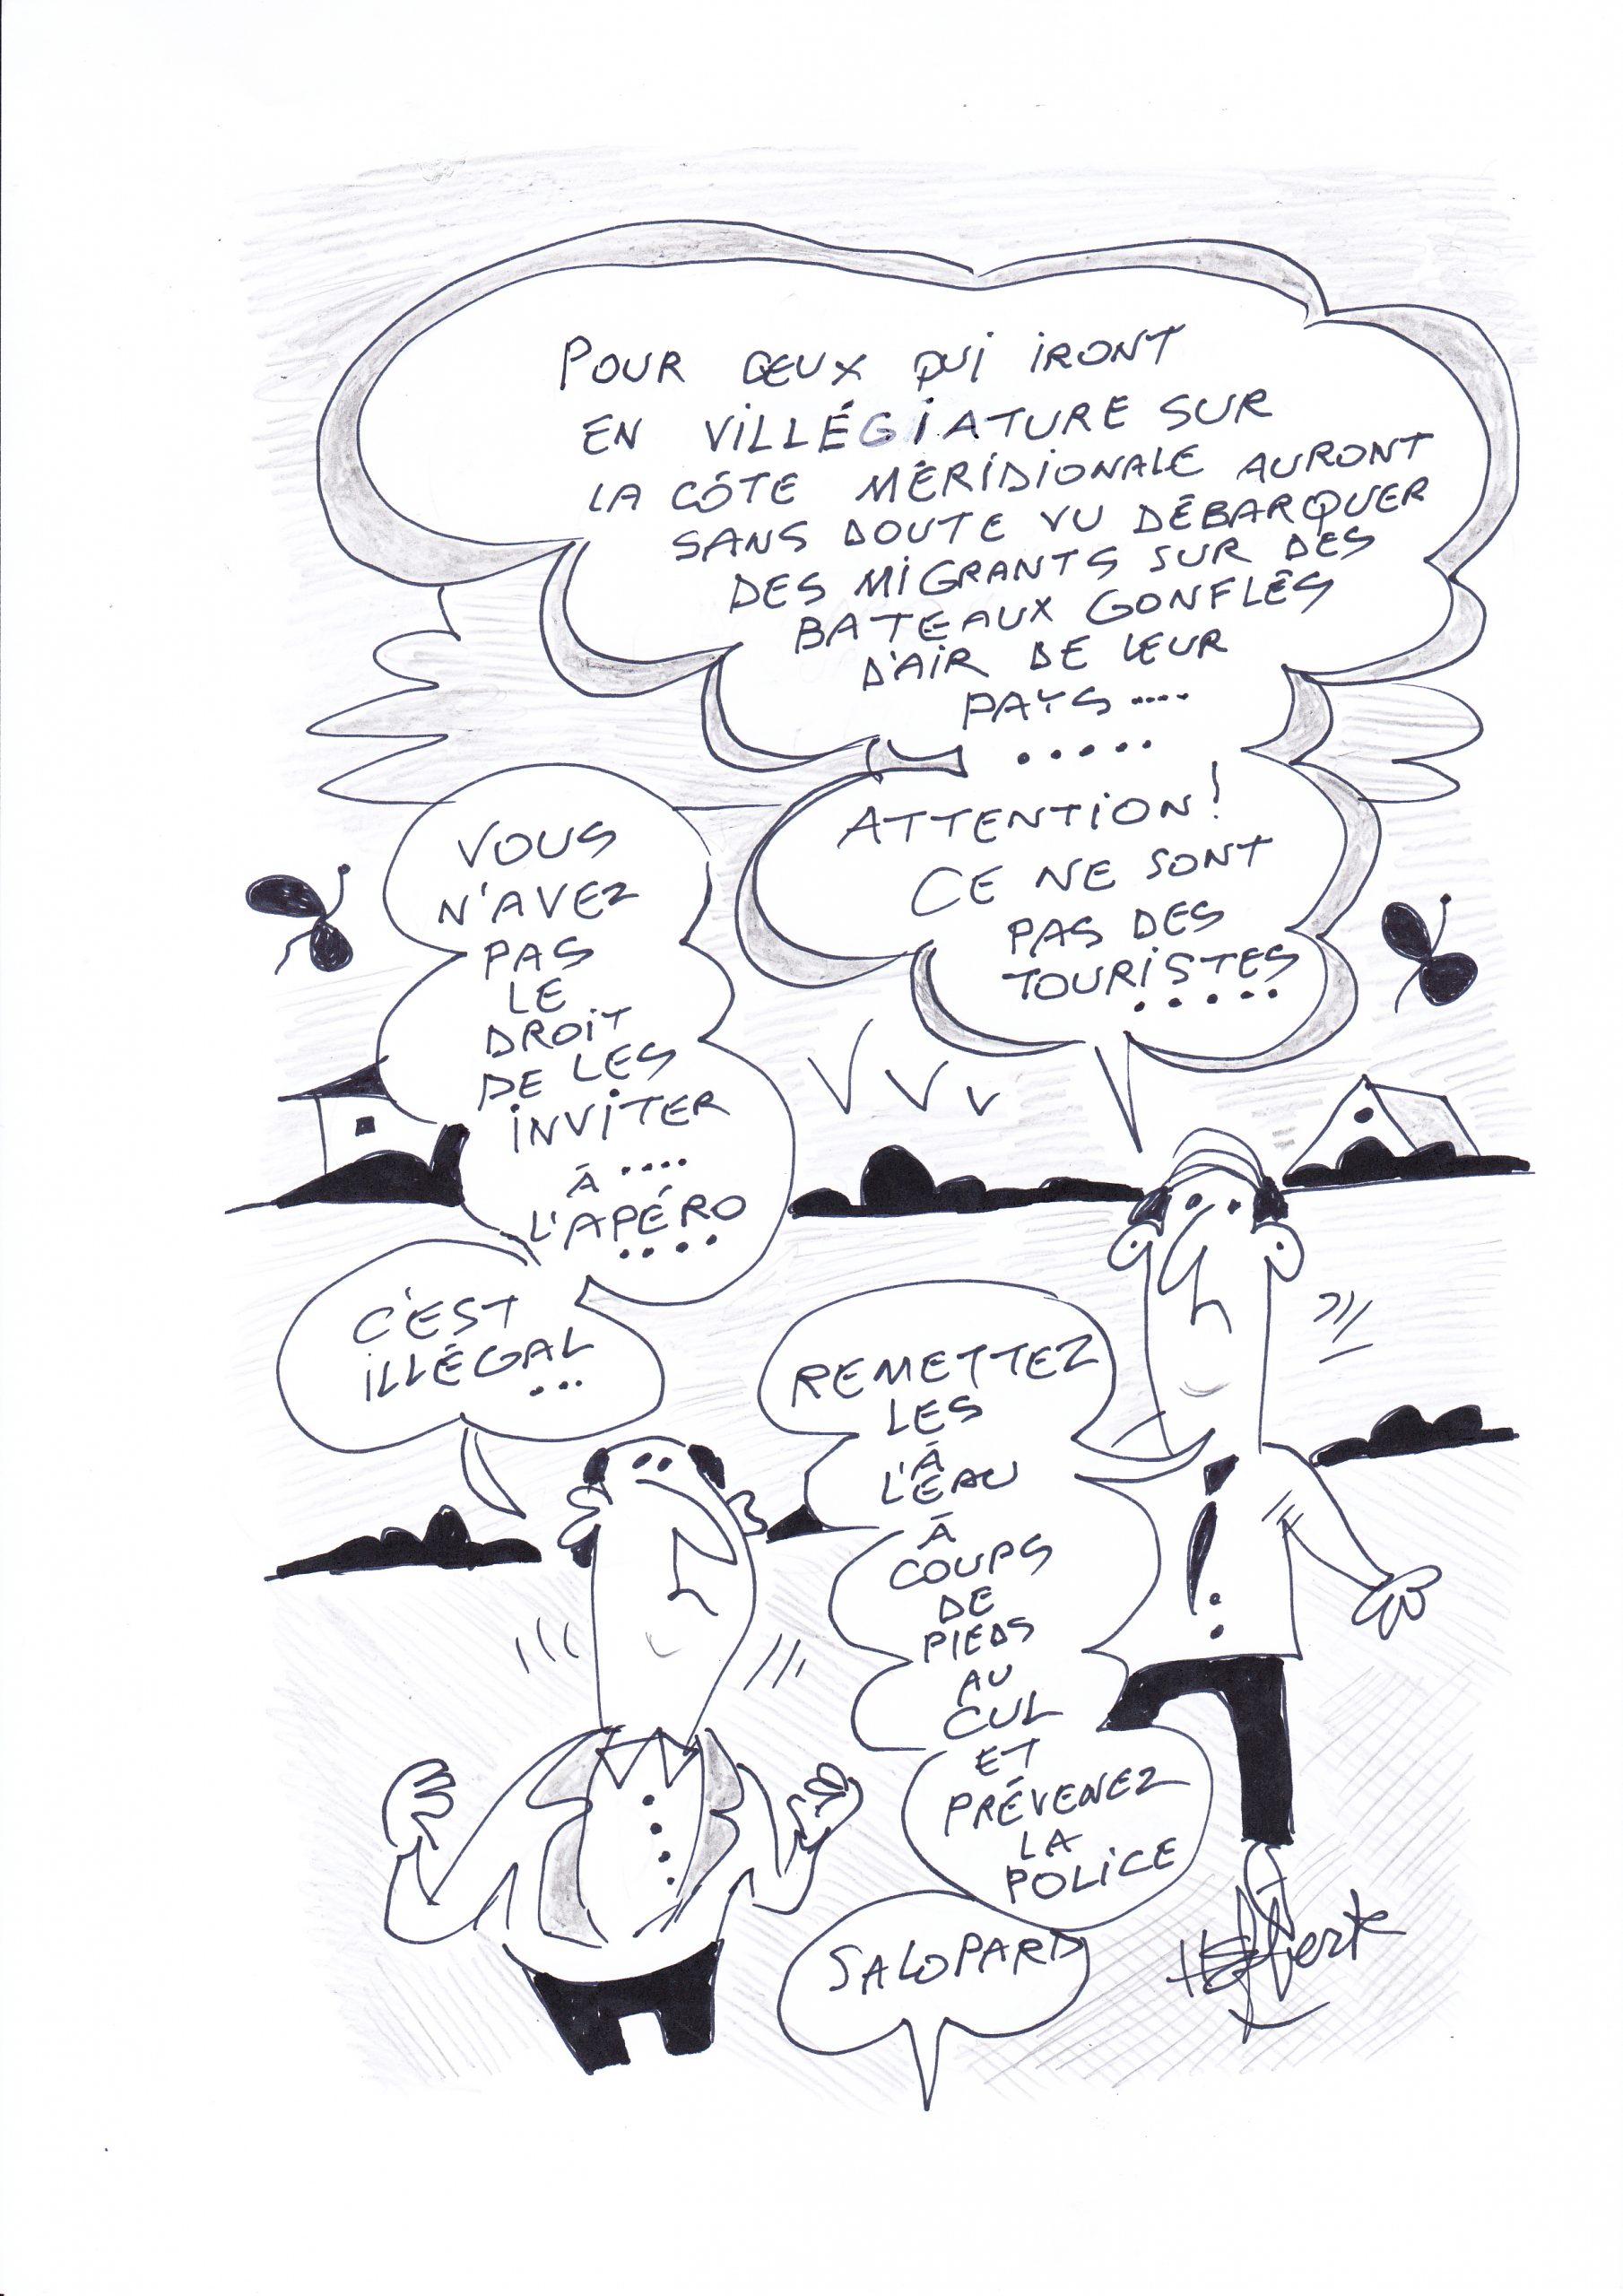 POUR CEUX QUI IRONT
EN VILLÉGIATURE SUR
LA CÔTE MÉRIDIONALE AURONT
SANS DOUTE VU DÉBARQUER
DES MIGRANTS SUR DES
BATEAUX GONFLÉS
D'AIR DE LEUR
PAYS ....
.....
ATTENTION!
CE NE SONT
PAS DES
TOURISTES
.....
VOUS
N'AVEZ
PAS
LE
DROIT
DE LES
INVITER
À ....
L'APÉRO
....
C'EST
ILLÉGAL
...
REMETTEZ
LES
À
L'EAU
À
COUPS
DE
PIEDS
AU
CUL
ET
PRÉVENEZ
LA
POLICE
SALOPARD